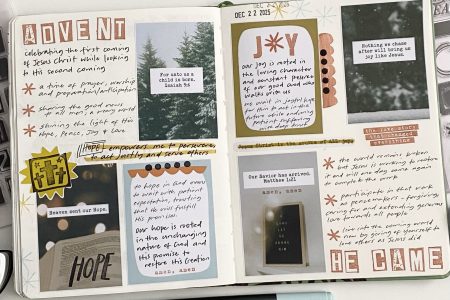 ADVENT
celebrating the first coming
of Jesus Christ while looking
to His second coming
a time of prayer, worship
and preparation/anticipation
sharing the good news
to all men, a weary world
sharing the light of His
Hope, Peace, Joy & Love
For unto us a
child is born.
Isaiah 9:6
HOPE empowers me to persevere,
to act justly and serve others
Heaven sent our Hope.
HOPE
to hope in God means
to wait with patient
expectation, trusting
that He will fulfill
His promises.
Our hope is rooted
in the unchanging
nature of God and
His promise to
restore His creation
amen, amen
DEC 22 2025
JOY
our joy is rooted in
the loving character
and constant presence
of our good God who
walks with us
we wait in joyful hope
for
future while enduring
Nothing we chase
after will bring us
joy like Jesus.
the
that changes
everything
Jesus Christ is the source of all joy
Our Savior has arrived.
Matthew 1:21
amen, amen
the world remains broken
and Jesus is working to restore
it and will one day come again
to complete the work
participate in that work
as peace-makers, forgiving
and caring for and extending generous
love towards all people
live into the coming world
now by giving of yourself to
love others as Jesus did
HE CAME